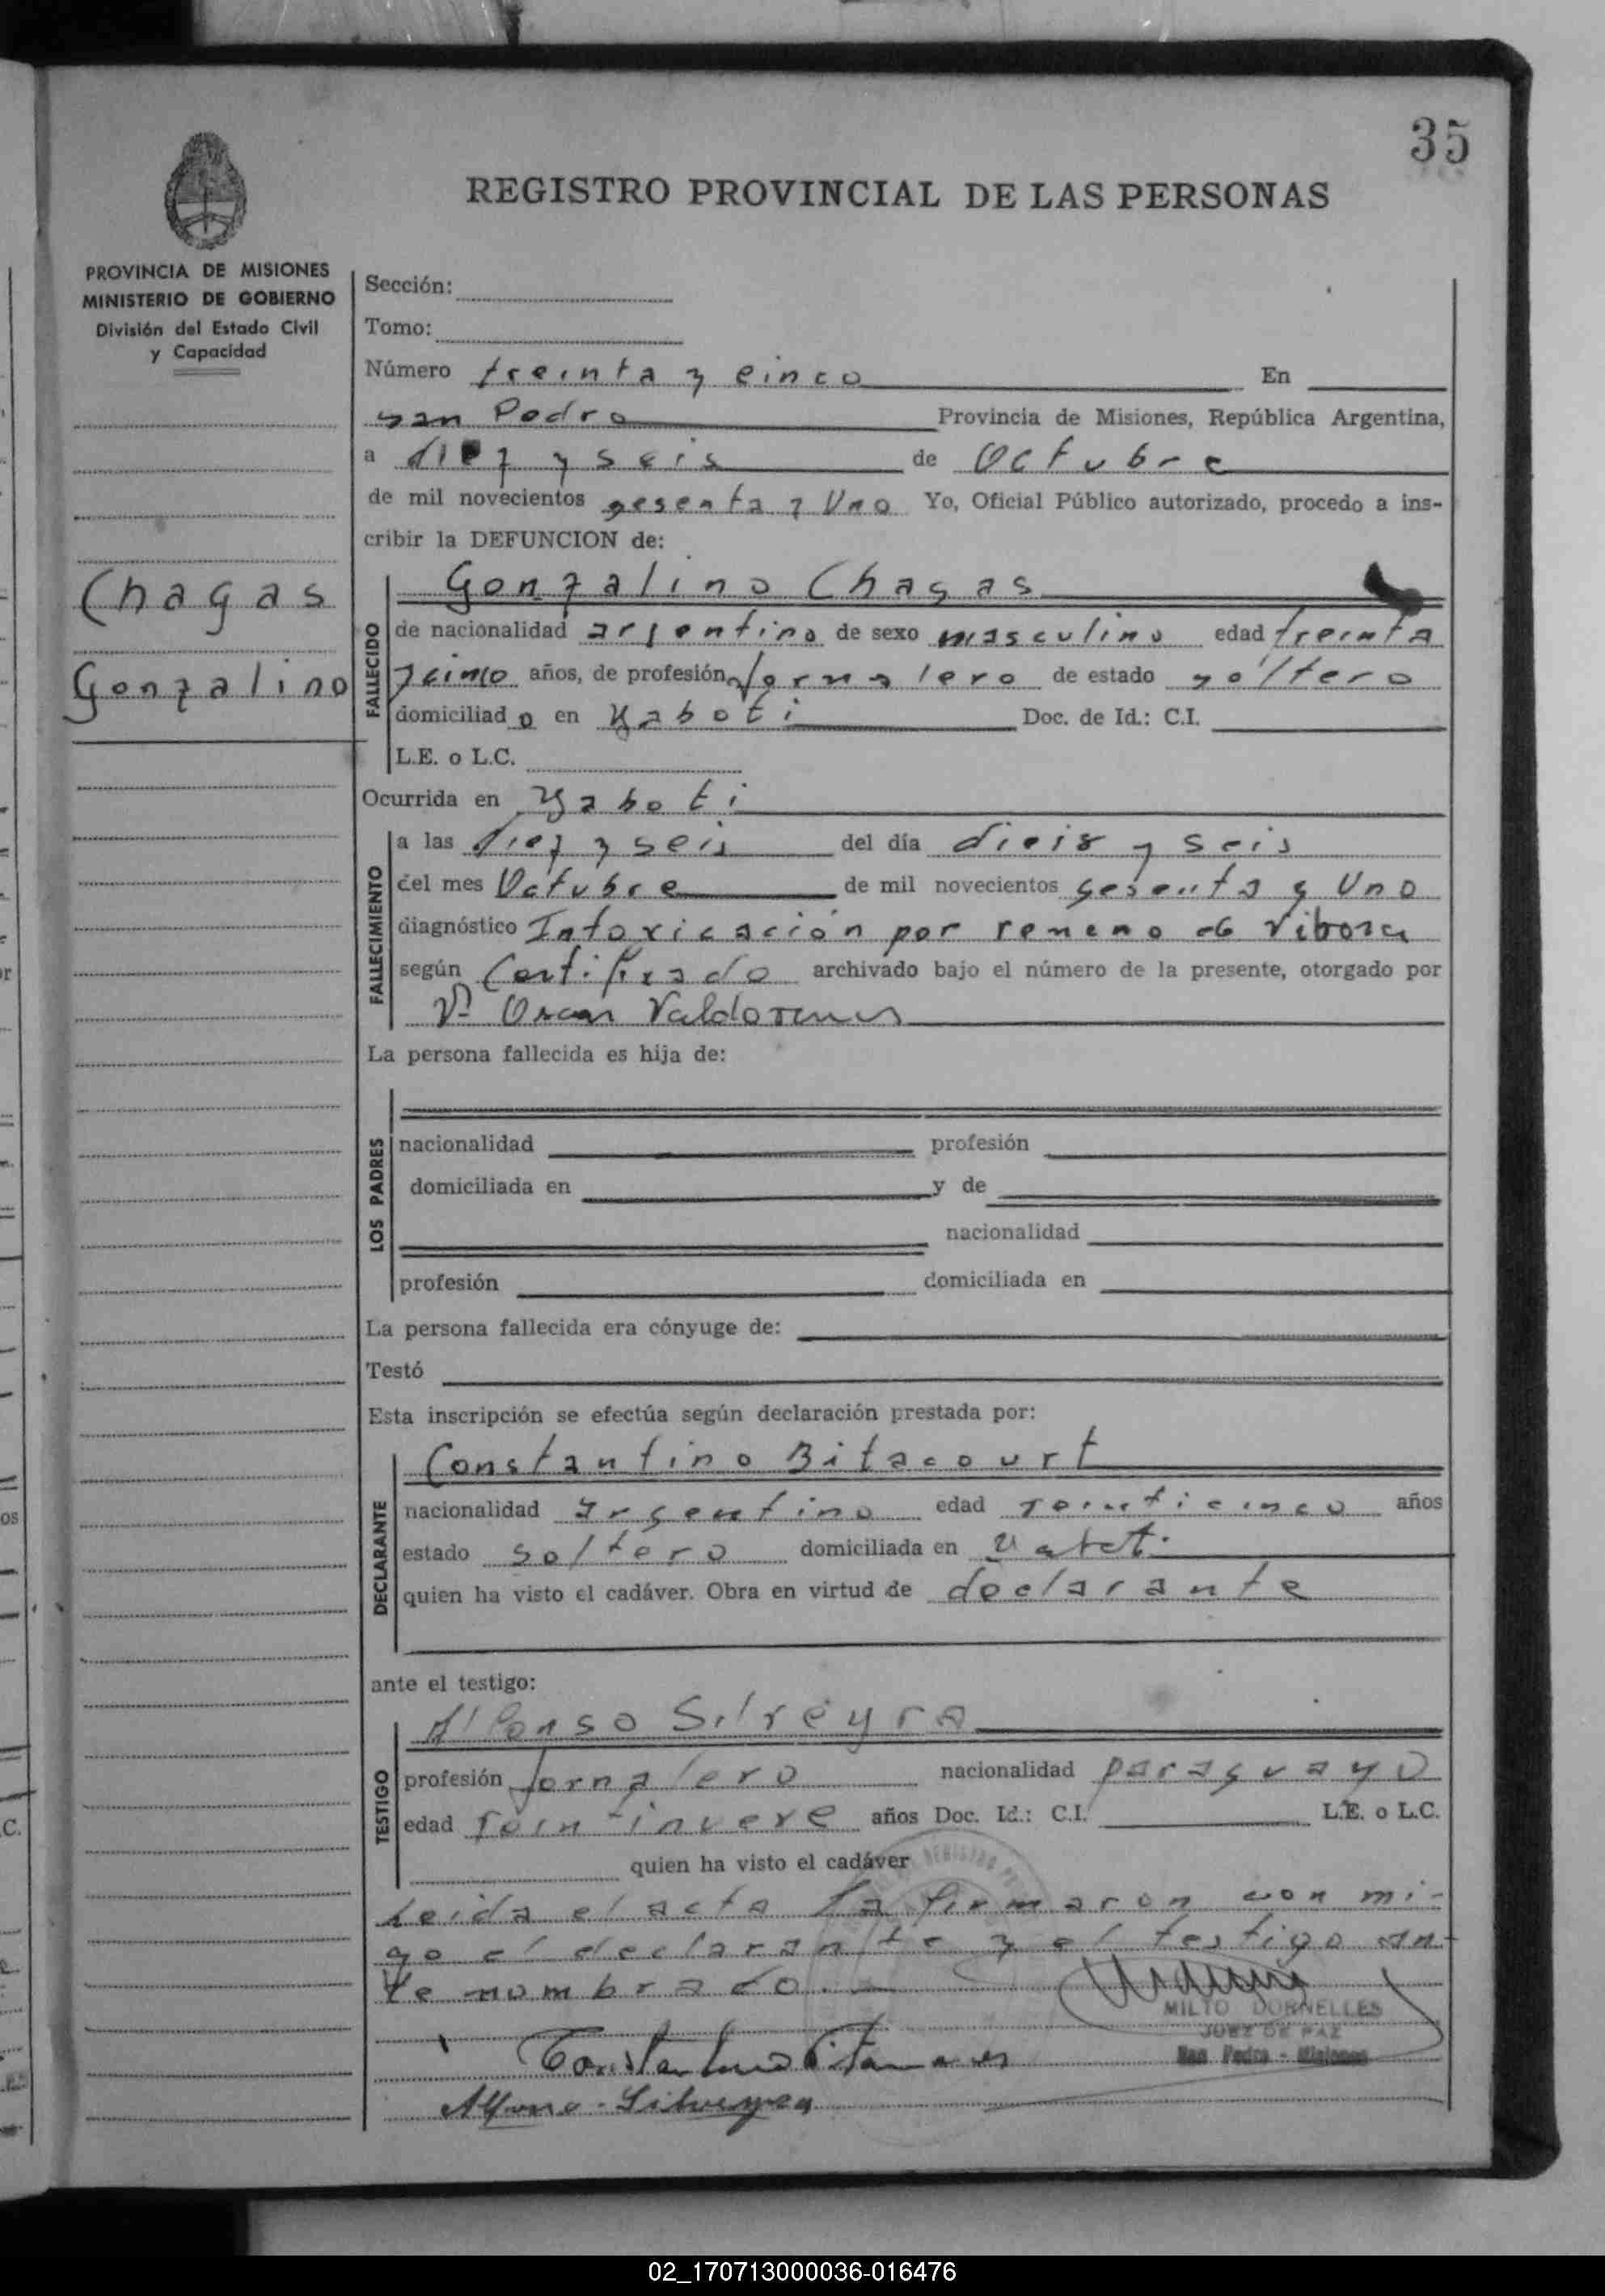 35
REGISTRO PROVINCIAL DE LAS PERSONAS
PROVINCIA DE MISIONES
MINISTERIO DE GOBIERNO
División del Estado Civil
y Capacidad
Chagas
Gonzalino
Sección:
Tomo:
Número treinta y cinco En
San Pedro Provincia de Misiones, República Argentina,
a diez y seis de Octubre
de mil novecientos sesenta y Uno Yo, Oficial Público autorizado, procedo a ins-
cribir la DEFUNCION de:
FALLECIDO
Gonzalino Chagas
de nacionalidad argentino de sexo masculino edad treinta
y cinco años, de profesión Jornalero de estado soltero
domiciliado en Yaboti Doc. de Id.: C.I.
L.E. o L.C.
Ocurrida en Yaboti
FALLECIMIENTO
a las diez y seis del día dieis y seis
del mes Octubre de mil novecientos sesenta y Uno
diagnóstico Intoxicación por veneno de Vibora
según Certificado archivado bajo el número de la presente, otorgado por
Oscar
La persona fallecida es hija de:
LOS PADRES
nacionalidad profesión
domiciliada en y de
nacionalidad
profesión domiciliada en
La persona fallecida era cónyuge de:
Testó
Esta inscripción se efectúa según declaración prestada por:
DECLARANTE
Constantino Bitacourt
nacionalidad argentino edad veinticinco años
estado soltero domiciliada en
quien ha visto el cadáver. Obra en virtud de declarante
ante el testigo:
TESTIGO
Alfonso Silveyra
profesión Jornalero nacionalidad paraguayo
edad años Doc. Id.: C.I. L.E. o L.C.
quien ha visto el cadáver
Leida el acta la firmaron con mi-
go el declarante y el testigo an-
te nombrado.
MILTO DORNELLES
JUEZ DE PAZ
San Pedro - Misiones
Alfonso Silveyra
02_170713000036-016476